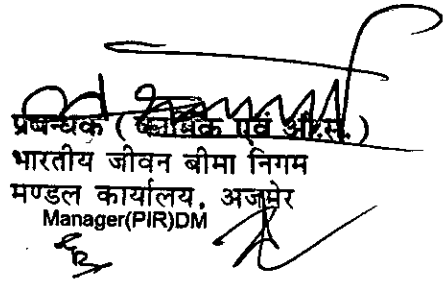 प्रबन्धक (कार्मिक एवं औ.सं.)
भारतीय जीवन बीमा निगम
मण्डल कार्यालय, अजमेर
Manager(PIR)DM